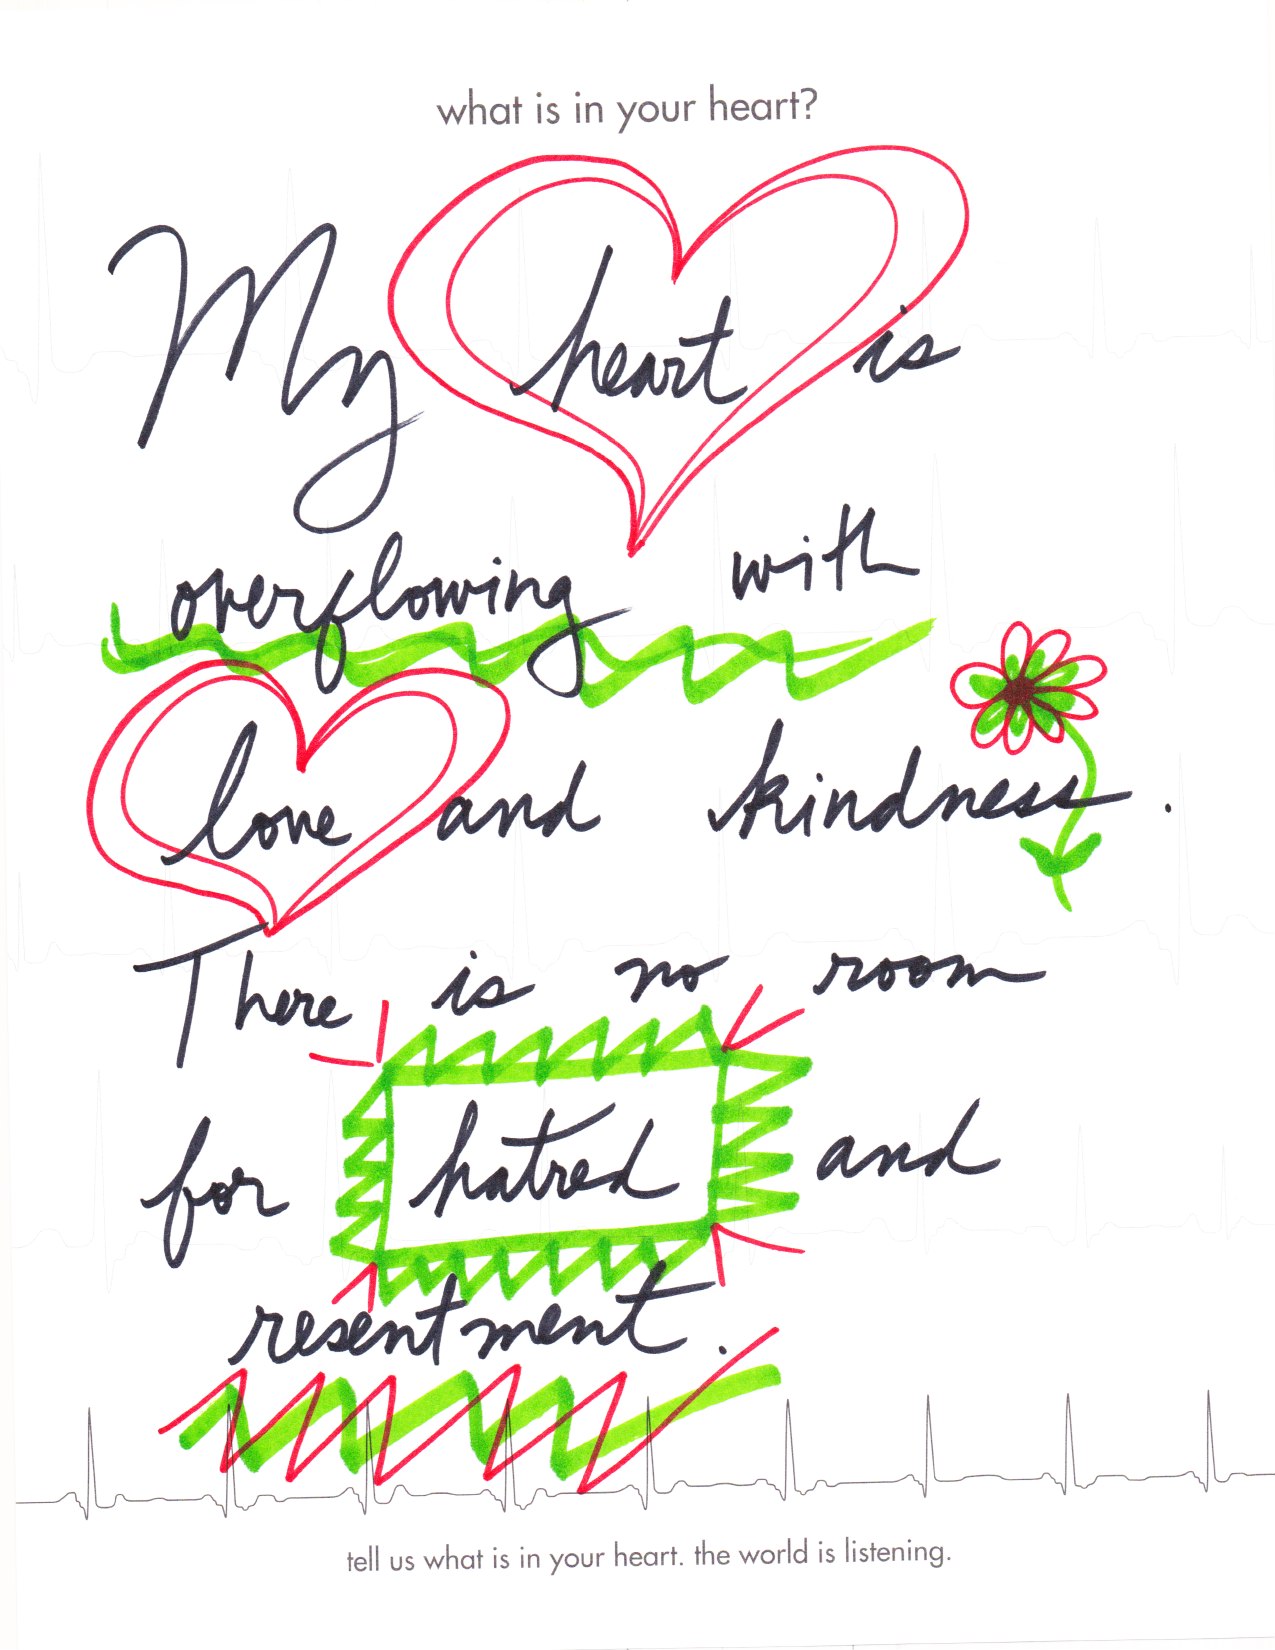 what is in your heart?
My heart is
overflowing with
love and kindness.
There is no room
for hatred and
resentment.
tell us what is in your heart. the world is listening.